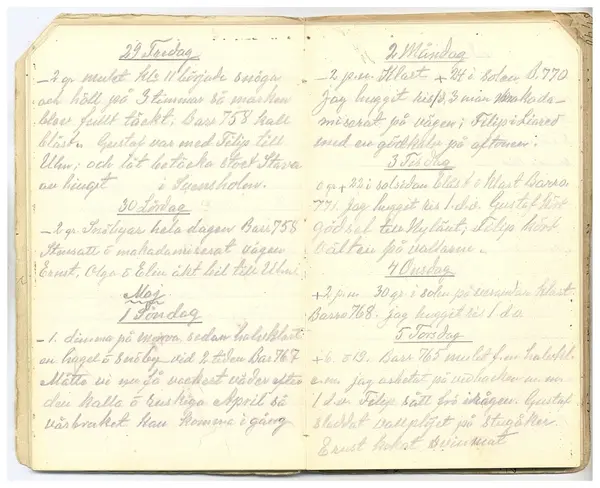 29 Fredag
-2 gr mulet kl. 11 började snöga
och höll på 3 timmar så marken
blev fullt täckt. Bar 758 kall
blåst. Gustaf var med Filip till
Ulm; och lät betäcka stoet Stava
av hingst i Synnsholm.
30 Lördag
-2 gr. Snöbyar hela dagen Bar 758
Stensatt o makadamiserat vägen
Ernst, Olga o Elin åkt bil till Ulm
Maj
1 Söndag
-1. dimma på morg. sedan halvklart
en hagel o snöby vid 2 tiden Bar 767
Måtte vi nu få vackert väder efter
den kalla o ruskiga April så
vårbruket kan komma i gång
2 Måndag
-2 p.m. Klart +24 i solen B. 770
jag huggit ris, 3 man makada-
miserat på vägen; Filip i Liared
med en gödkalv på aftonen.
3 Tisdag
0 gr +22 i solsidan blåst o klart Baro
771. jag huggit ris 1 d.v. Gustaf kört
gödsel till Nylänt, Filip kört
välten på vallarna.
4 Onsdag
+2 p.m. 30 gr i solen på verandan klart
Baro 768. jag huggit ris 1 d.v.
5 Torsdag
+6. o 12. Barr 765 mulet f.m halvkl.
e.m jag arbetat på vedbacken m.m.
1 d.v. Filip sått frö i vägen. Gustaf
sluttat vallplöjt på stugåker.
Ernst svinmat